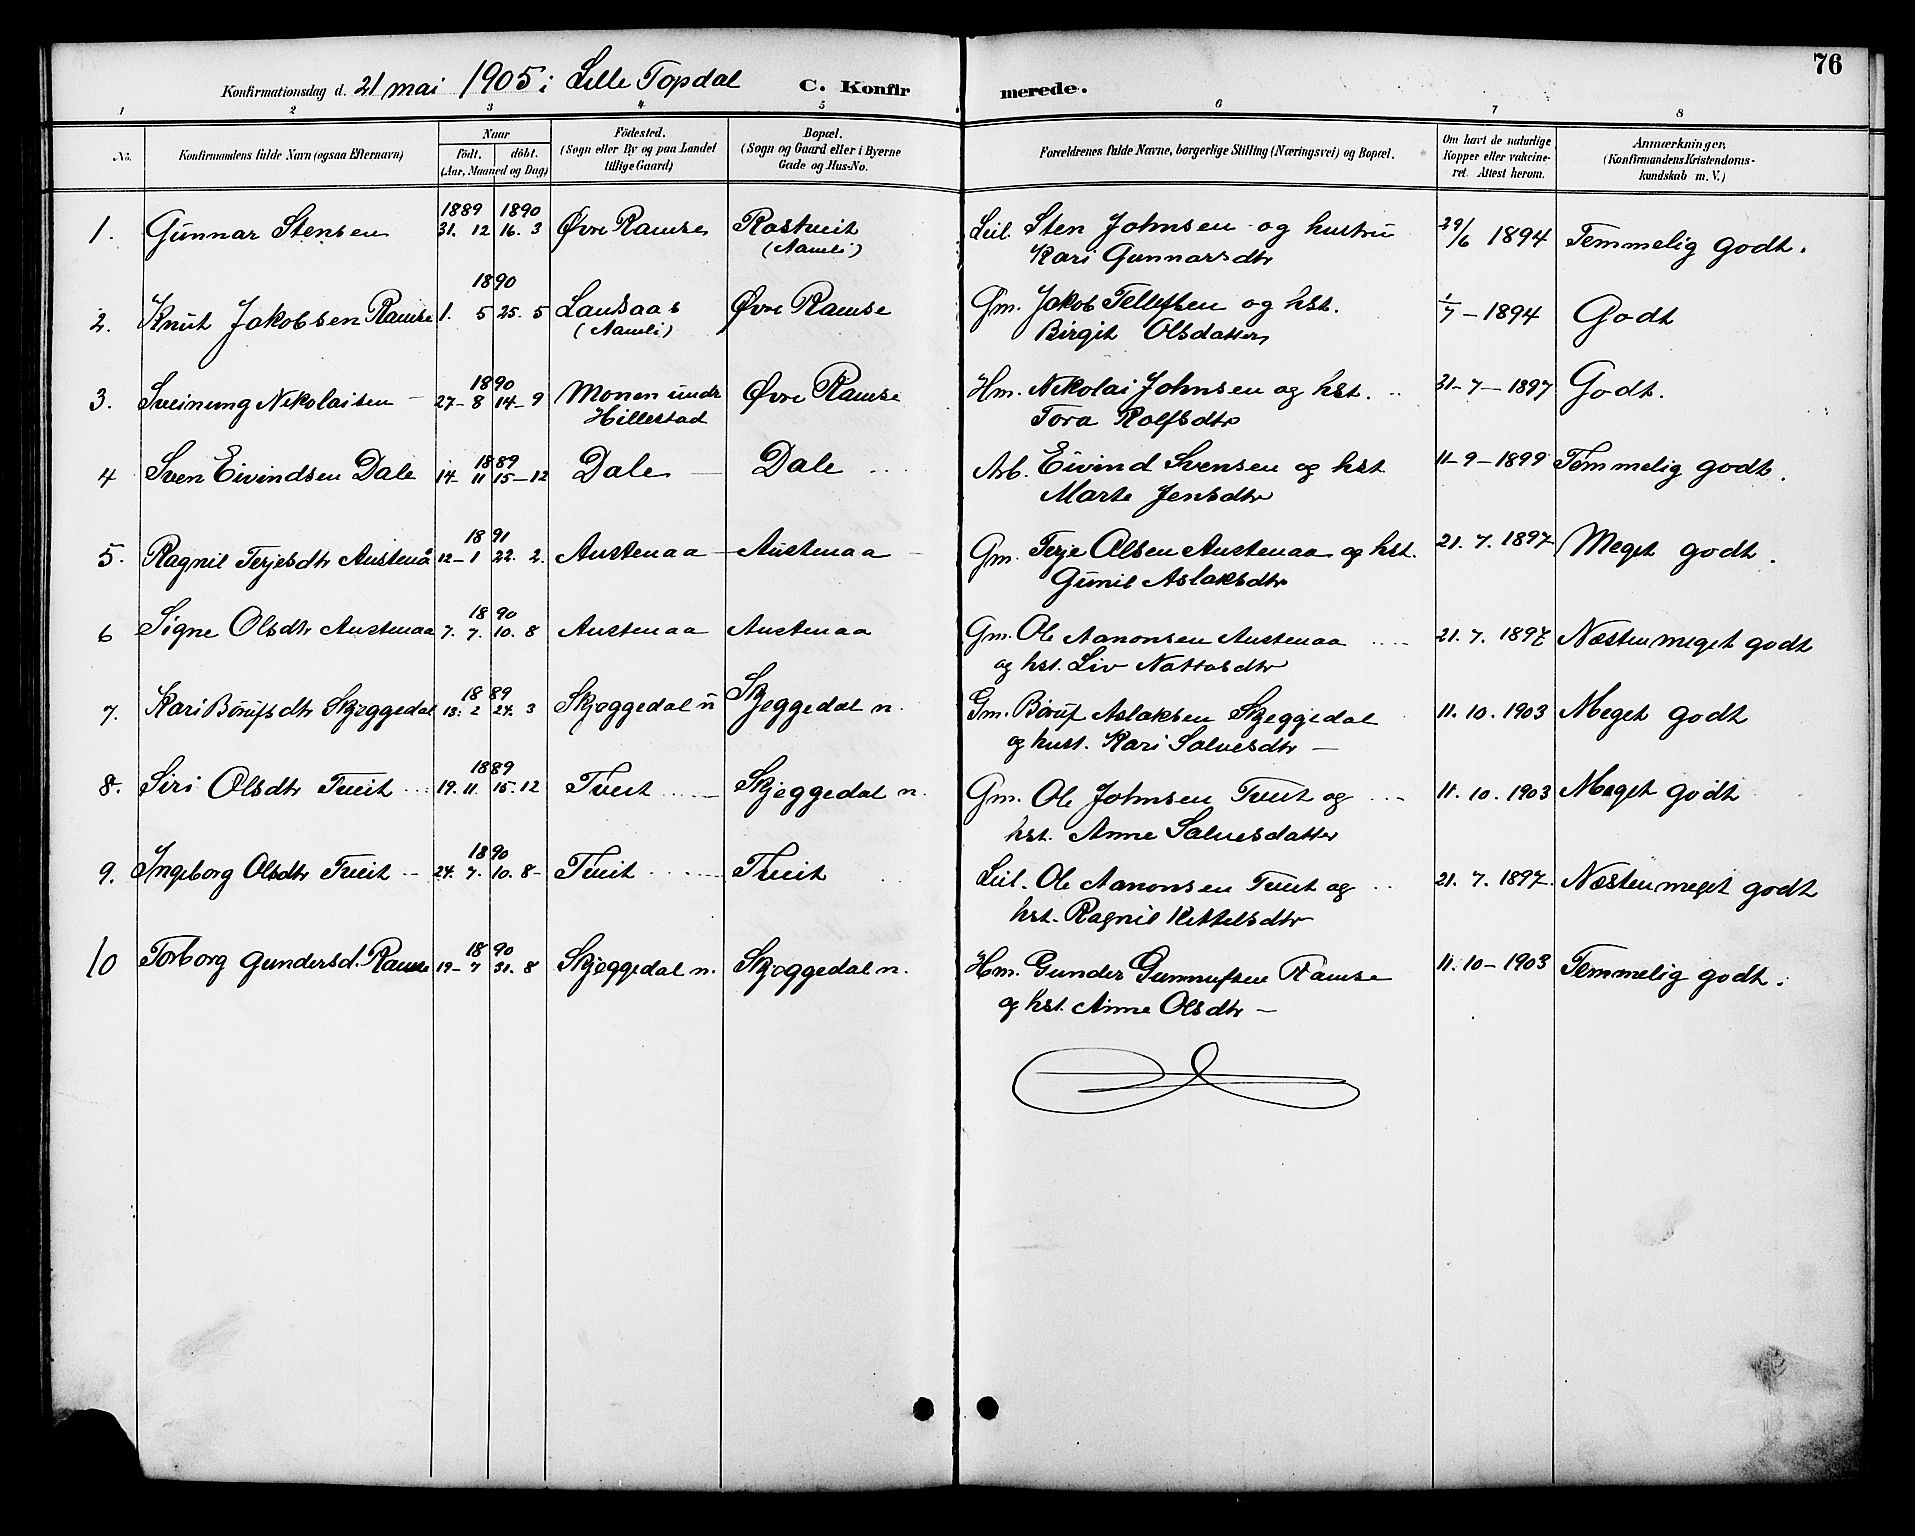 76
Konfirmationsdag d. 21 mai 1905 i Lille Topdal C. Konfirmerede.
1 2 3 4 5 6 7 8
No. Konfirmandens fulde Navn (ogsaa Efternavn) Naar födt. döbt. (Aar, Maaned og Dag) Födested. (Sogn eller By og paa Landet tillige Gaard) Bopæl. (Sogn og Gaard eller i Byerne Gade og Hus-No. Forældrenes fulde Navne, borgerlige Stilling (Næringsvei) og Bopæl. Om havt de naturlige Kopper eller vakcineret. Attest herom. Anmærkninger. (Konfirmandens Kristendomskundskab m. V.)
1889 1890
1. Gunnar Stensen 31. 12 16. 3 Øvre Ramse Rostveit (Aamli) Leil. Sten Johnsen og hustru 29/6 1894 Temmelig godt.
Kari Gunnarsdtr
1890
2. Knut Jakobsen Ramse 1. 5 25. 5 Lausaas (Aamli) Øvre Ramse Gm. Jakob Tellefsen og hst. 1/7 - 1894 Godt
Birgit Olsdatter
1890
3. Sveinung Nikolaisen 27-8 14-9 Monen undr Hillestad Øvre Ramse Hm. Nikolai Johnsen og hst. 31-7-1897 Godt.
Tora Rolfsdtr
1889
4 Sven Eivindsen Dale 14-11 15-12 Dale Dale Arb. Eivind Svensen og hst 11-9-1899 Temmelig godt.
Marte Jensdtr
1891
5. Ragnil Terjesdtr Austenå 12-1 22. 2. Austenaa Austenaa Gm. Terje Olsen Austenaa og hst. 21. 7. 1897 Meget godt.
Gunil Aslaksdtr
1890
6 Signe Olsdtr Austenaa 7. 7. 10. 8 Austenaa Austenaa Gm. Ole Aanonsen Austenaa 21. 7. 1897 Næsten meget godt
og hst. Liv Nattosdtr
1889
7. Kari Børufsdtr Skjeggedal 13. 2 24. 3 Skjeggedal n Skjeggedal n. Gm. Børuf Aslaksen Skjeggedal 11. 10. 1903 Meget godt
og hust. Kari Salvesdtr
1889
8. Siri Olsdtr Tveit 19. 11. 15. 12 Tveit Skjeggedal n. Gm. Ole Johnsen Tveit og 11. 10. 1903 Meget godt
hst. Anne Salvesdatter
1890
9. Ingeborg Olsdtr Tveit 24. 7. 10. 8 Tveit Tveit Leil. Ole Aanonsen Tveit og 21. 7. 1897. Næsten meget godt
hst. Ragnil Kittelsdtr
1890
10 Torborg Gundersd. Ramse 19-7 31. 8 Skjeggedal n. Skjeggedal n. Hm. Gunder Gunnufsen Ramse 11. 10-1903 Temmelig godt.
og hst. Anne Olsdtr